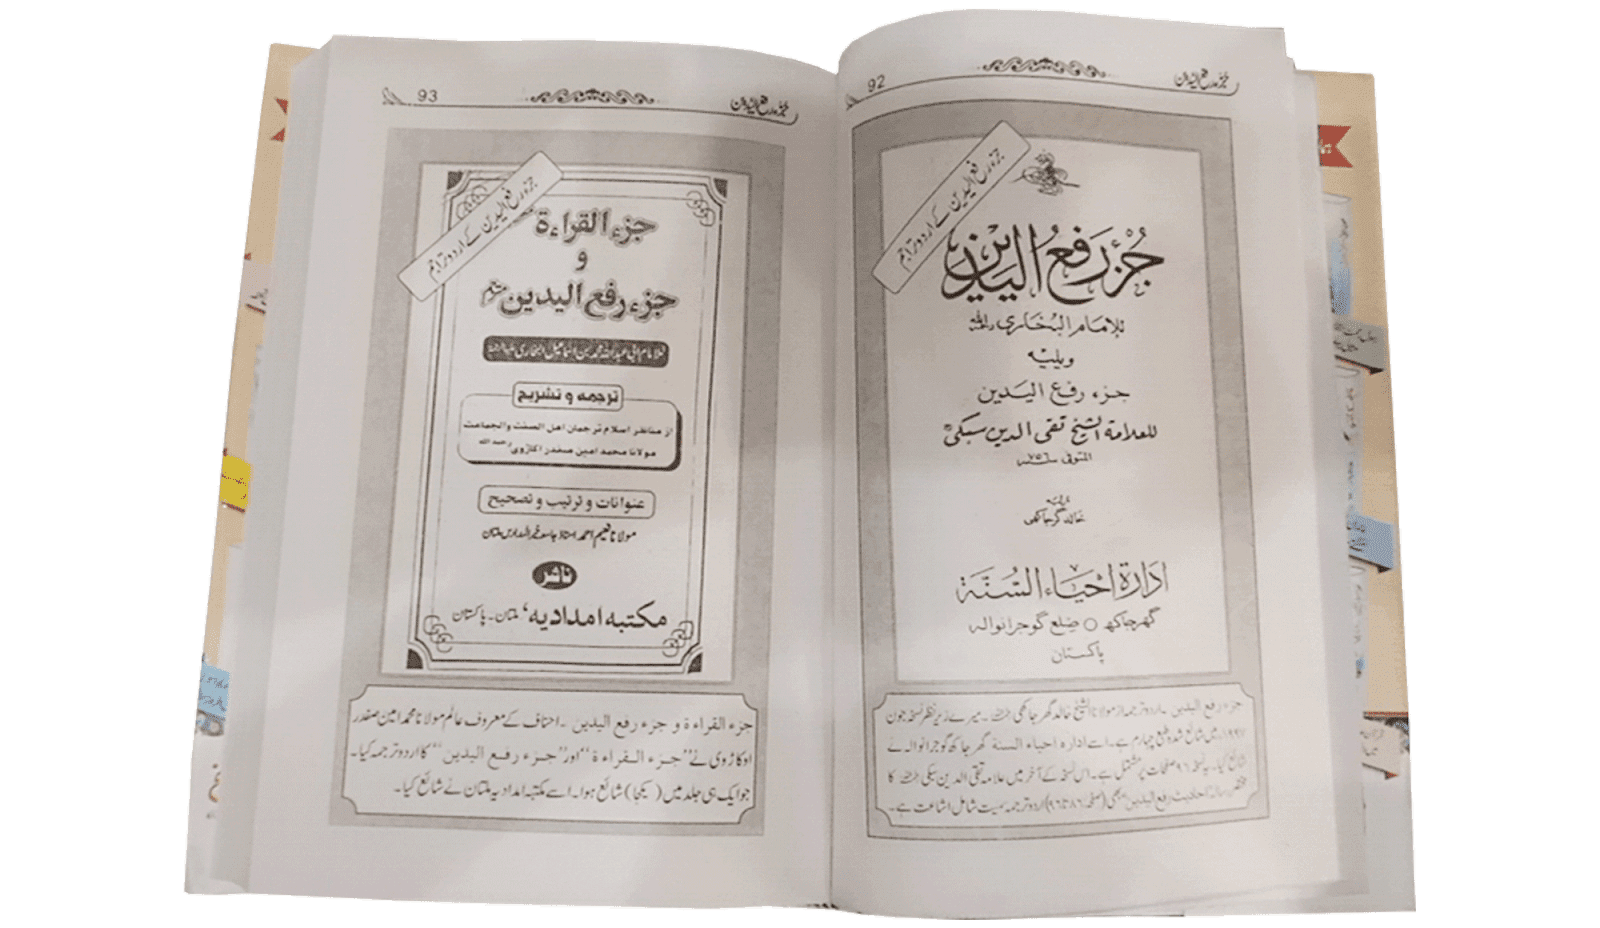 جزء رفع الیدین
92
جزء رفع الیدین کے اردو تراجم
جُزْءُ رَفعُ الیَدَین
للإمام البُخاری رحمہ اللہ
ویلیہ
جزء رفع الیدین
للعلامة الشیخ تقی الدین سبکی
المتوفی ۷۵۶
خالد گرجاکھی
ادارة احیاء السُّنَّة
گھرجاکھ ○ ضلع گوجرانوالہ
پاکستان
جزء رفع الیدین ۔ اردو ترجمہ از مولانا الشیخ خالد گھرجاکھی ۔ میرے زیر نظر نسخہ جون
۱۹۹۷ء میں شائع شدہ طبع چہارم ہے۔ اسے ادارہ احیاء السنة گھرجاکھ گوجرانوالہ نے
شائع کیا۔ یہ نسخہ ۹۶ صفحات پر مشتمل ہے۔ اس نسخہ کے آخر میں علامہ تقی الدین سبکی کا
مختصر رسالہ احادیث رفع الیدین بھی (صفحہ ۸۶ تا ۹۶) اردو ترجمہ سمیت شامل اشاعت ہے۔
جزء رفع الیدین
93
جزء رفع الیدین کے اردو تراجم
جزء القراءة
و
جزء رفع الیدین مترجم
للامام ابی عبداللہ محمد بن اسماعیل البخاری
ترجمہ و تشریح
از مناظر اسلام ترجمان اهل السنت والجماعت
مولانا محمد امین صفدر اکاڑوی رحمه الله
عنوانات و ترتیب و تصحیح
مولانا نعیم احمد استاذ جامعہ خیر المدارس ملتان
ناشر
مکتبہ امدادیہ، ملتان۔ پاکستان
جزء القراءة و جزء رفع الیدین ۔ احناف کے معروف عالم مولانا محمد امین صفدر
اوکاڑوی نے "جزء القراءة" اور "جزء رفع الیدین" کا اردو ترجمہ کیا۔
جو ایک ہی جلد میں (یکجا) شائع ہوا۔ اسے مکتبہ امدادیہ ملتان نے شائع کیا۔